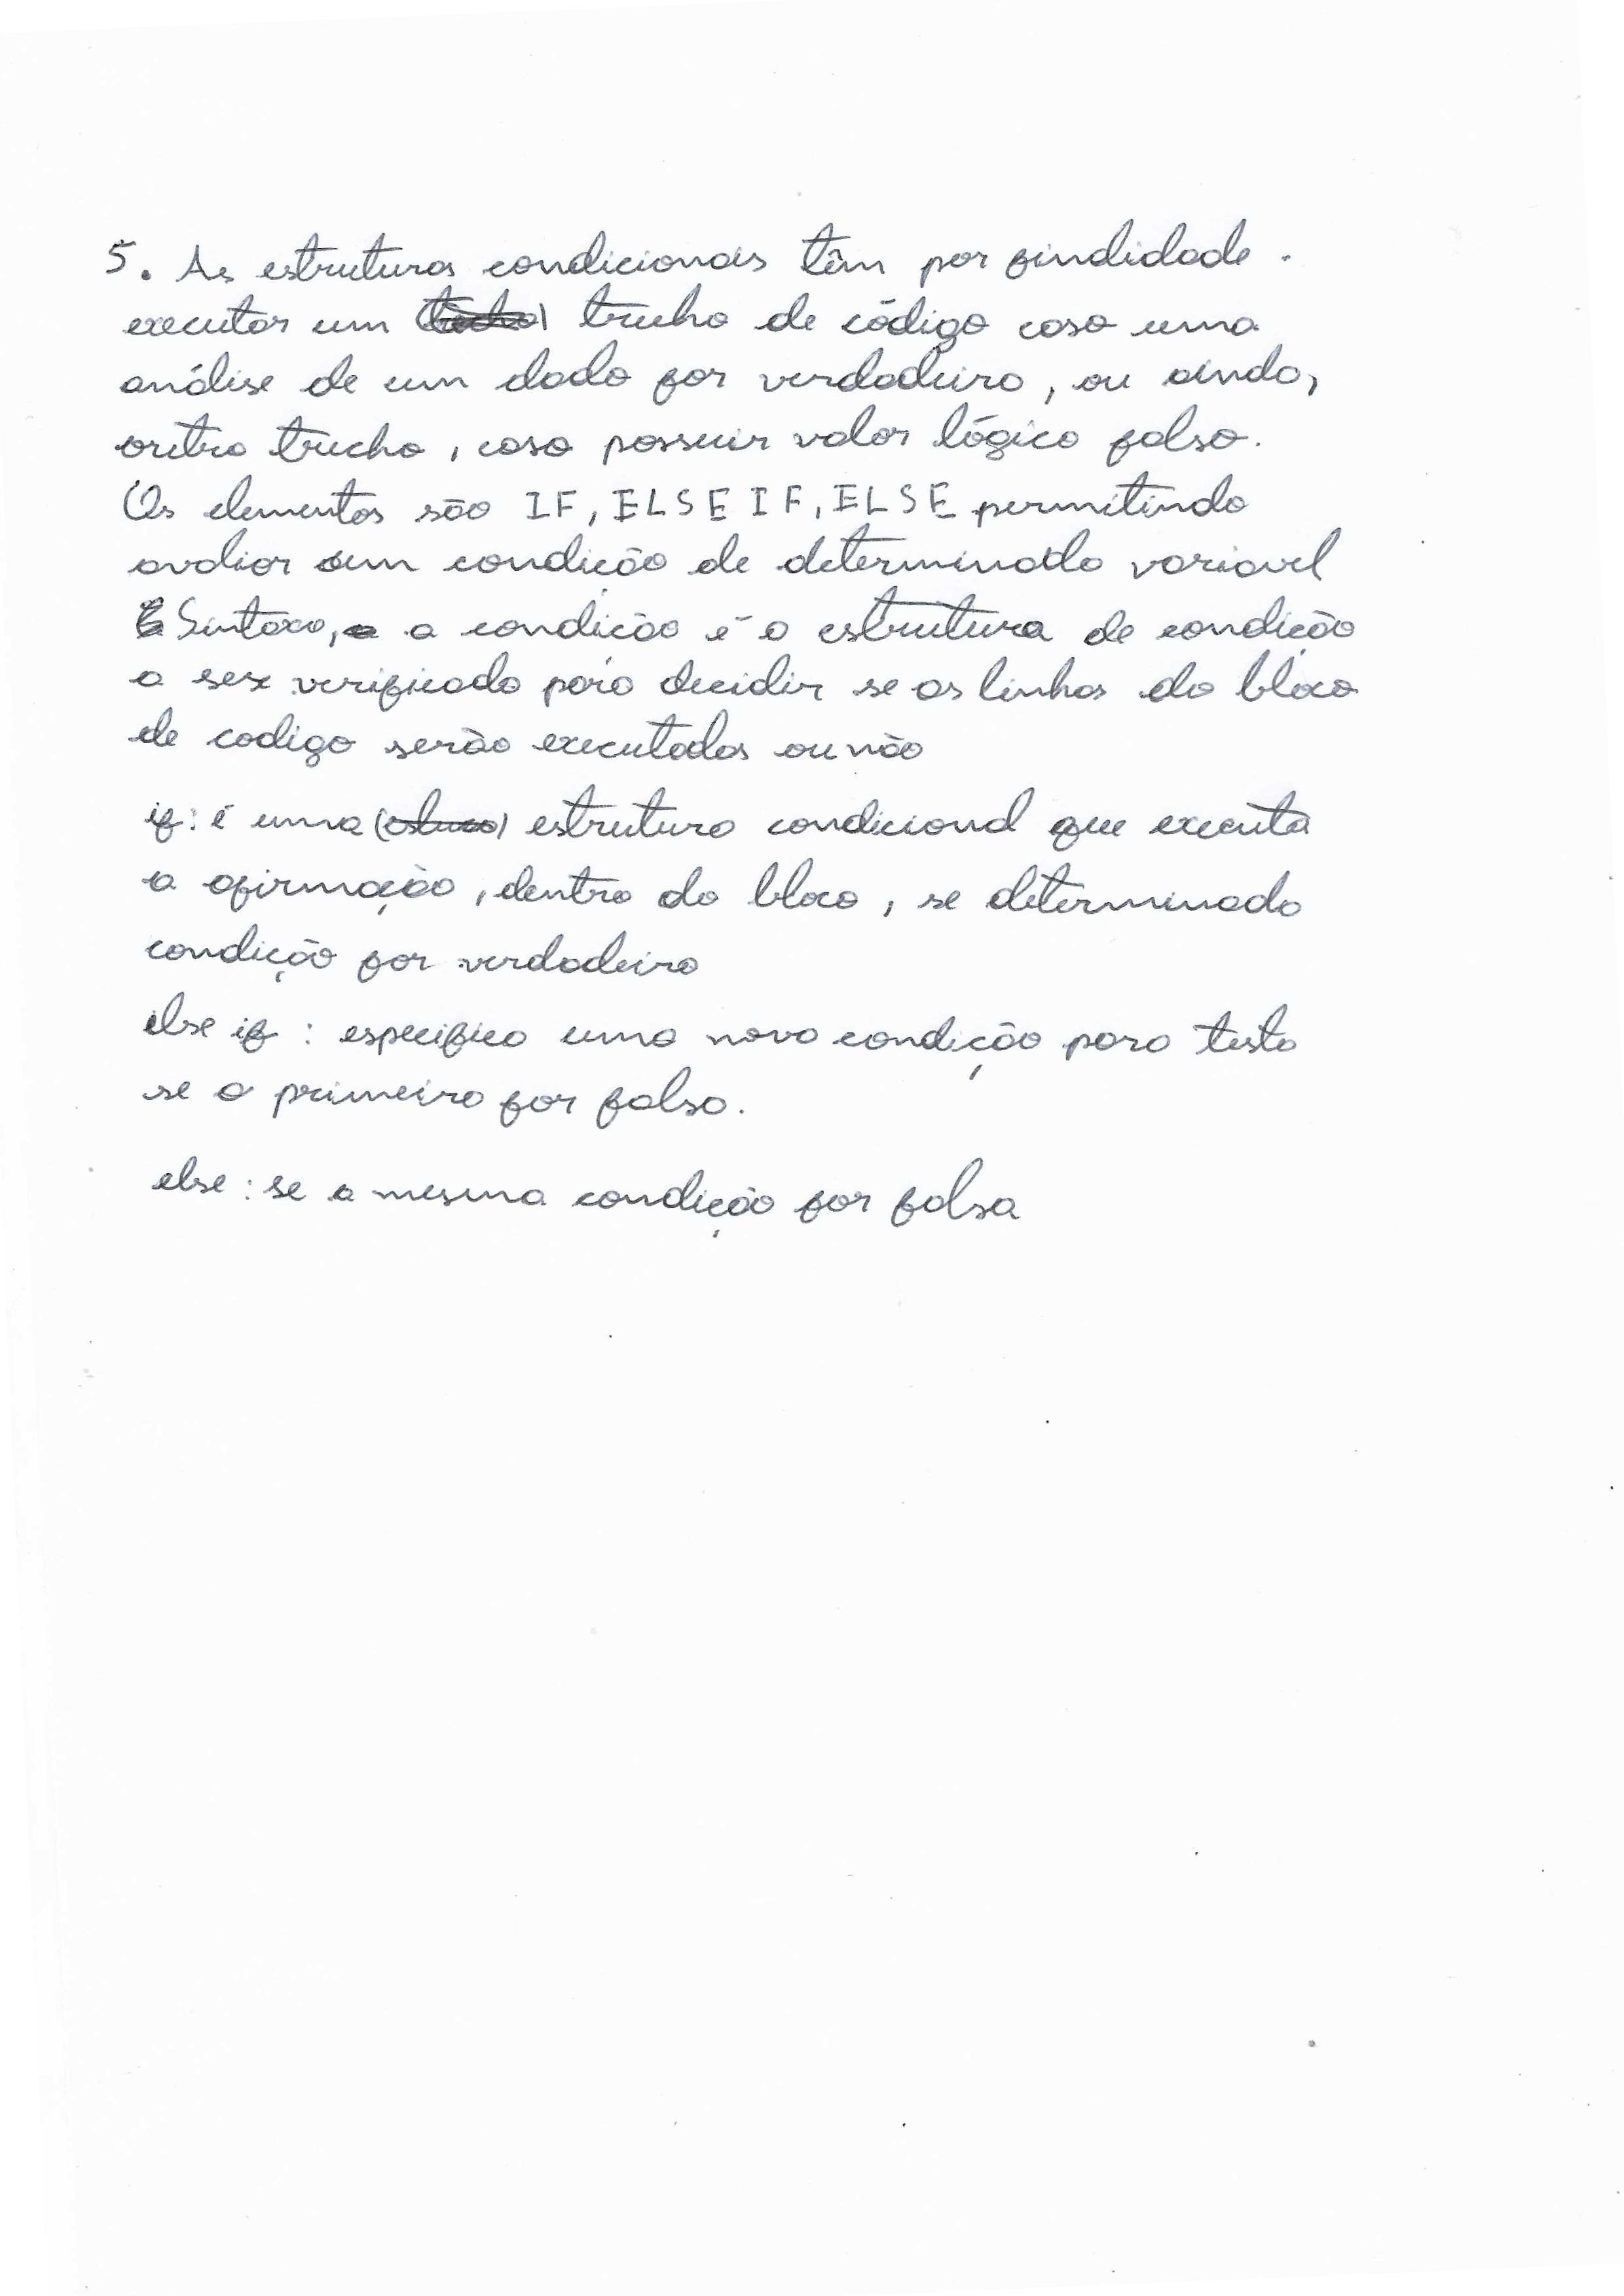 5. As estruturas condicionais têm por findidade.
executar um trecho de código caso uma
análise de um dado for verdadeiro, ou ainda,
outro trecho, caso possuir valor lógico falso.
Os elementos são IF, ELSE IF, ELSE permitindo
avaliar um condição de determinada variavel
Sintaxe, a condição é a estrutura de condição
a ser verificada para decidir se as linhas do bloco
de codigo serão executadas ou não
if: é uma estrutura condicional que executa
a afirmação, dentro do bloco, se determinada
condição for verdadeira
else if : especifica uma nova condição para teste
se a primeira for falsa.
else : se a mesma condição for falsa